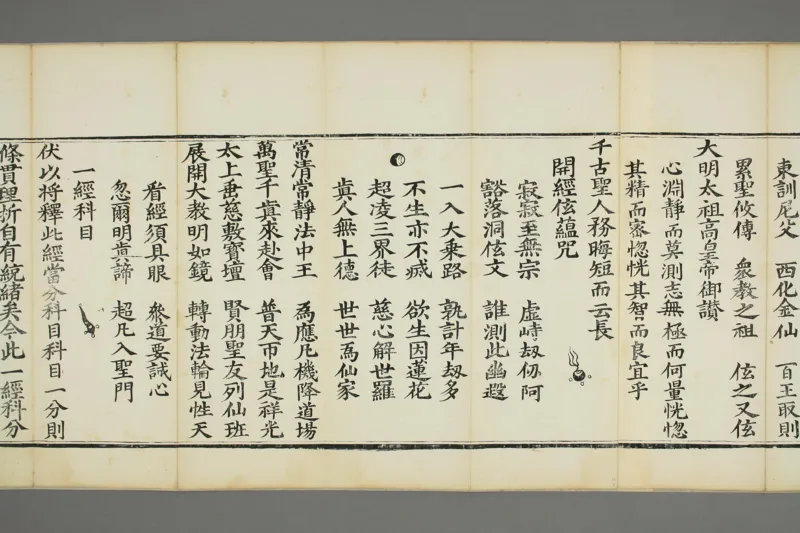 東訓尼父　西化金仙　百王取則
累聖攸傳　衆教之祖　伭之又伭
大明太祖高皇帝御讃
心淵靜而莫測志無極而何量恍惚
其精而密惚恍其智而良宜乎
千古聖人務晦短而云長
開經伭蘊咒
寂寂至無宗　虛峙劫仞阿
豁落洞伭文　誰測此幽遐
一入大乘路　孰計年劫多
不生亦不滅　欲生因蓮花
超凌三界徒　慈心解世羅
眞人無上德　世世爲仙家
常清常靜法中王　爲應凡機降道場
萬聖千眞來赴會　普天帀地是祥光
太上垂慈敷寶壇　賢朋聖友列仙班
展開大教明如鏡　轉動法輪見性天
看經須具眼　衆道要誠心
忽爾明眞諦　超凡入聖門
一經科目
伏以将釋此經當分科目科目一分則
條貫理析自有統緒矣今此一經科分